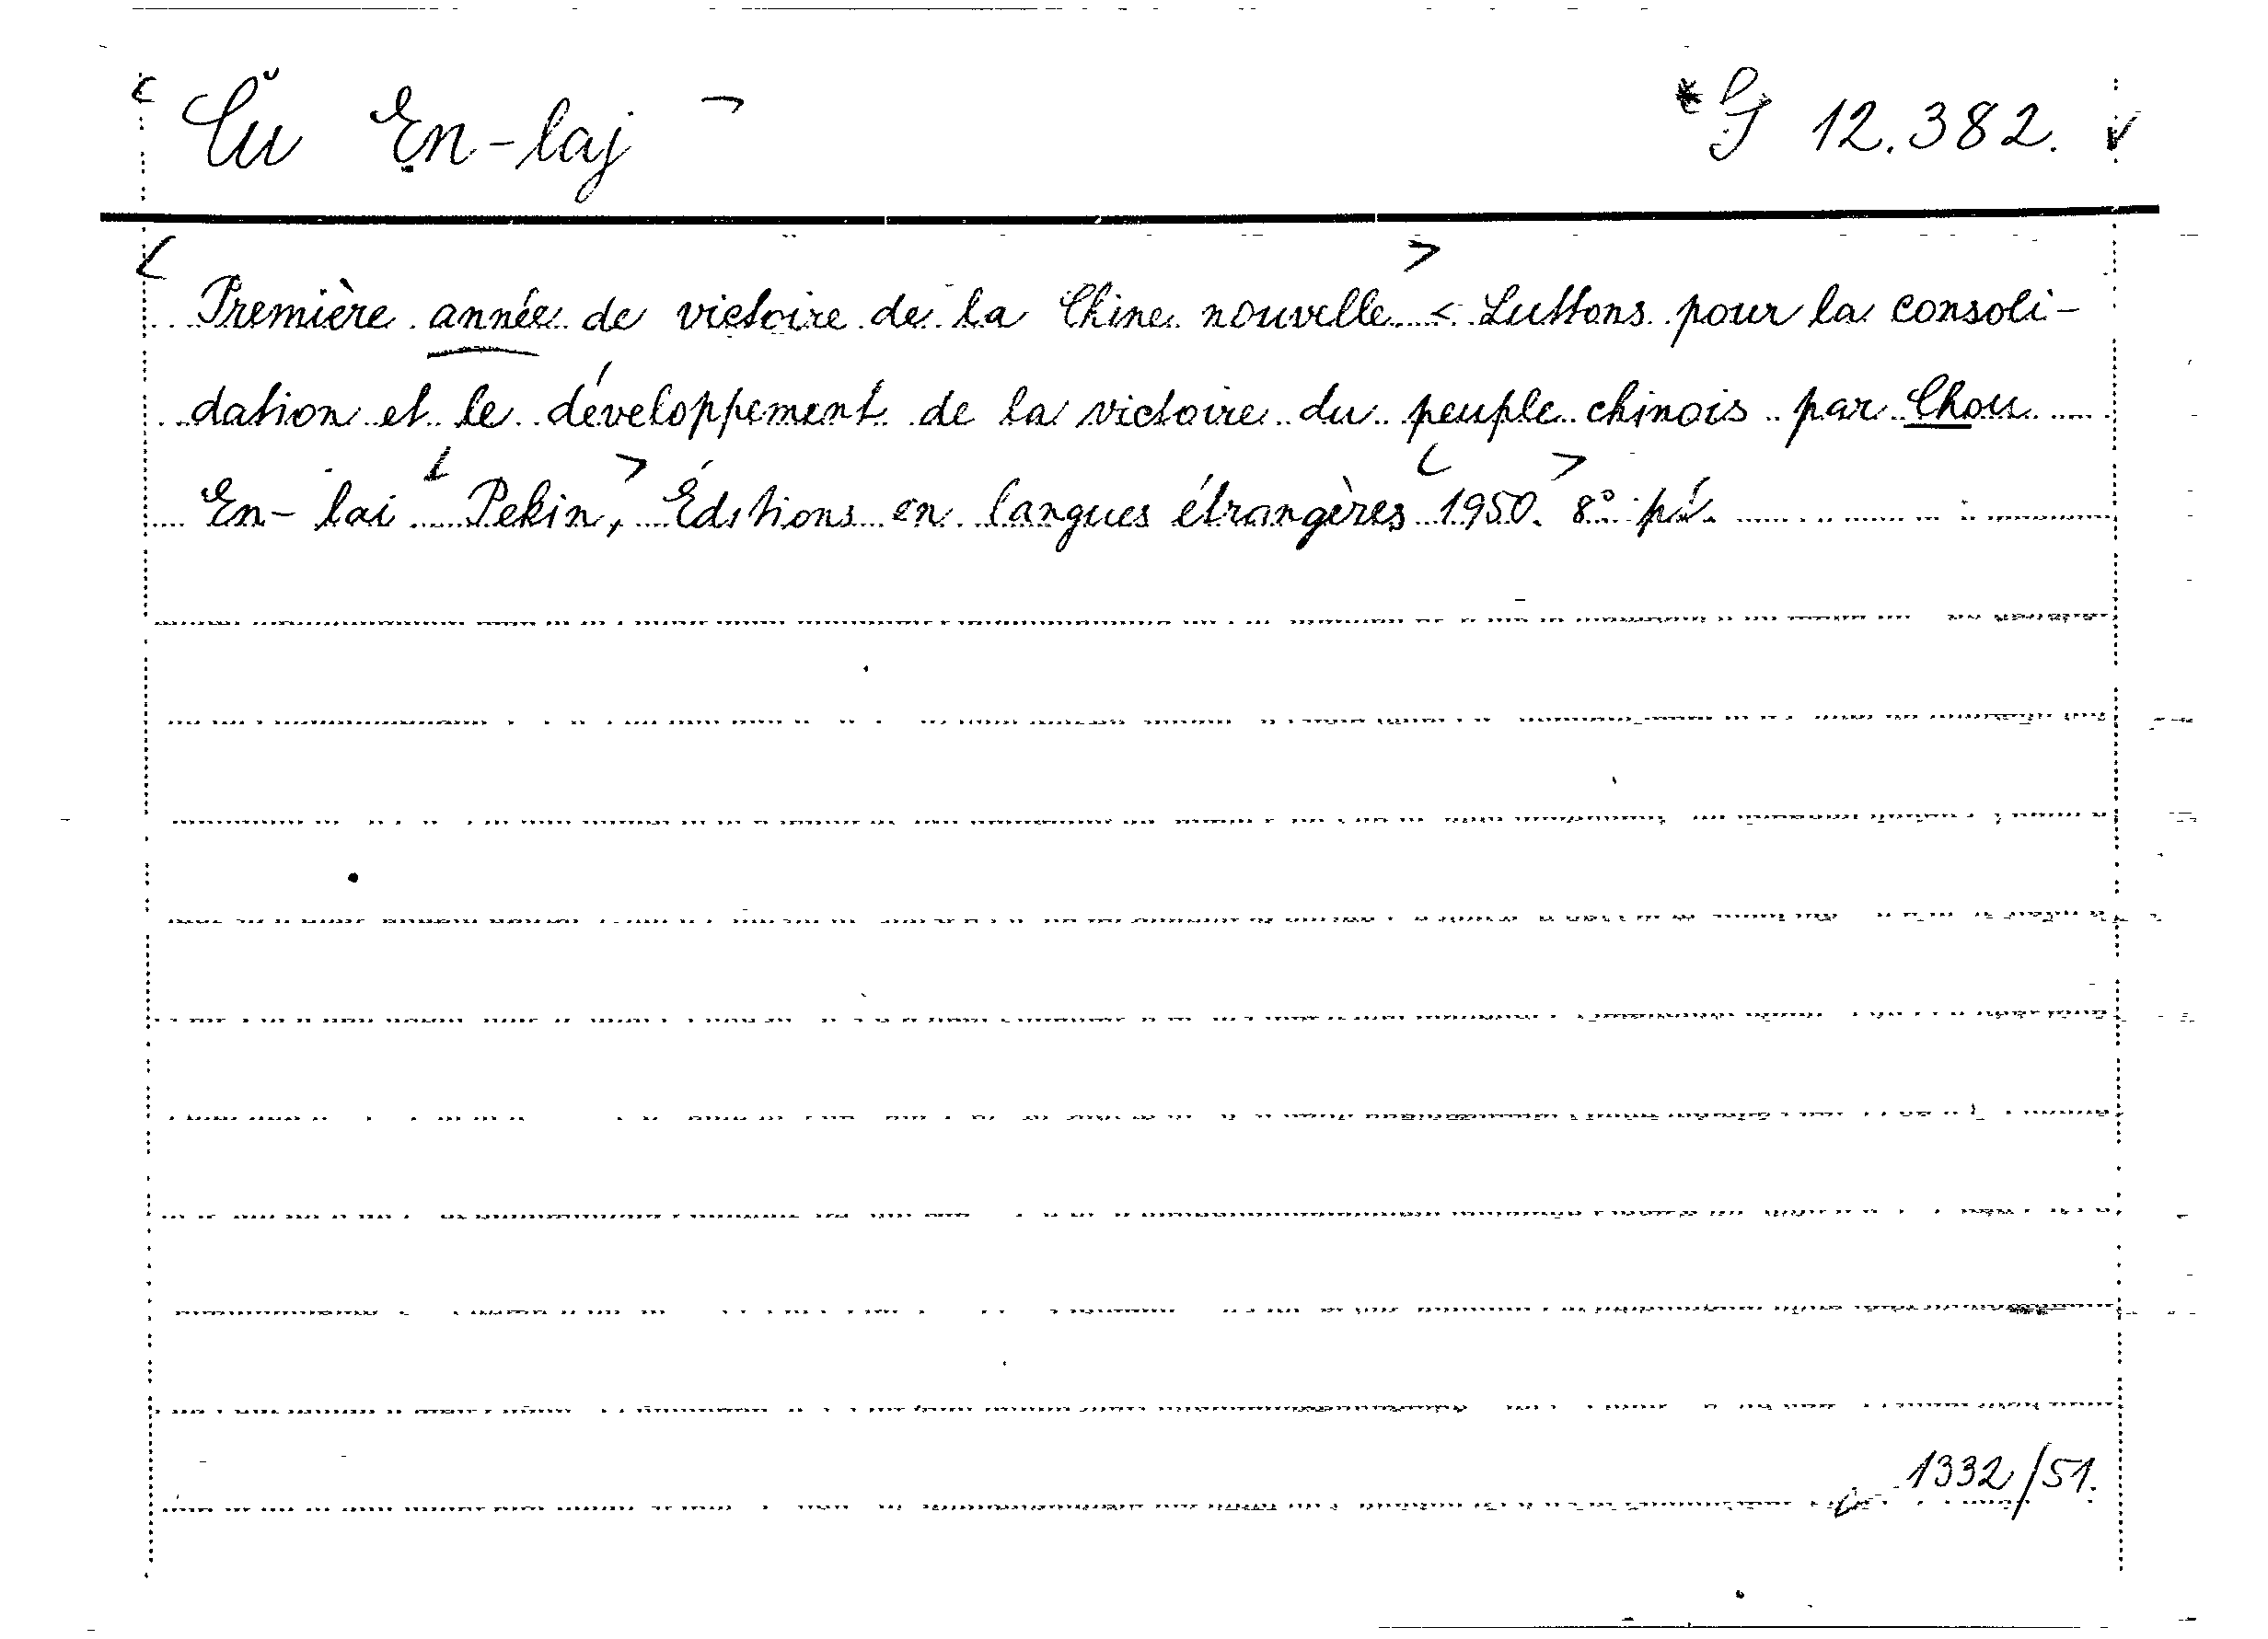 Ču En-laj *G 12.382.
Première année de victoire de la Chine nouvelle < Luttons pour la consoli-
dation et le développement de la victoire du peuple chinois par Chou
En-lai Pekin, Éditions en langues étrangères 1950. 8° pí.
1332/51.